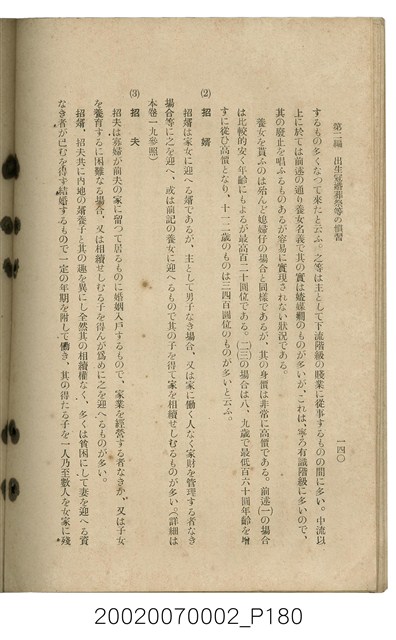 第二編 出生冠婚葬祭等の慣習
一四〇
するもの多くなつて來たと云ふ。之等は主として下流階級の賤業に從事するものの間に多い。中流以
上に於ては前述の通り養女名義で其の實は媳婦嫺のものが多いが、これは、寧ろ有識階級に多いので、
其の廢止を唱ふるものあるが容易に實現されない狀況である。
養女を貰ふのは殆んど媳婦仔の場合と同樣であるが、其の身價は非常に高價である。前述(一)の場合
は比較的安く年齡にもよるが最高百二十圓位である。(二)(三)の場合は八、九歲で最低百六十圓年齡を增
すに從ひ高價となり、十一二歲のものは三四百圓位のものが多いと云ふ。
(2) 招婿
招婿は家女に迎へる婿であるが、主として男子なき場合、又は家に働く人なく家財を管理する者なき
場合等に之を迎へ、或は前記の養女に迎へるもので其の子を得て家を相續せしむるものが多い(詳細は
本卷一九參照)
(3) 招夫
招夫は寡婦が前夫の家に留つて居るものに婚姻入戶するもので、家業を經營する者なきか、又は子女
を養育するに困難なる場合、又は相續せしむる子を得んが爲めに之を迎へるものが多い。
招婿、招夫共に內地の婿養子と其の趣を異にし全然其の相續權なく、多くは貧困にして妻を迎へる資
なき者が已むを得ず結婚するもので一定の年期を附して働き、其の得たる子を一人乃至數人を女家に殘
20020070002_P180